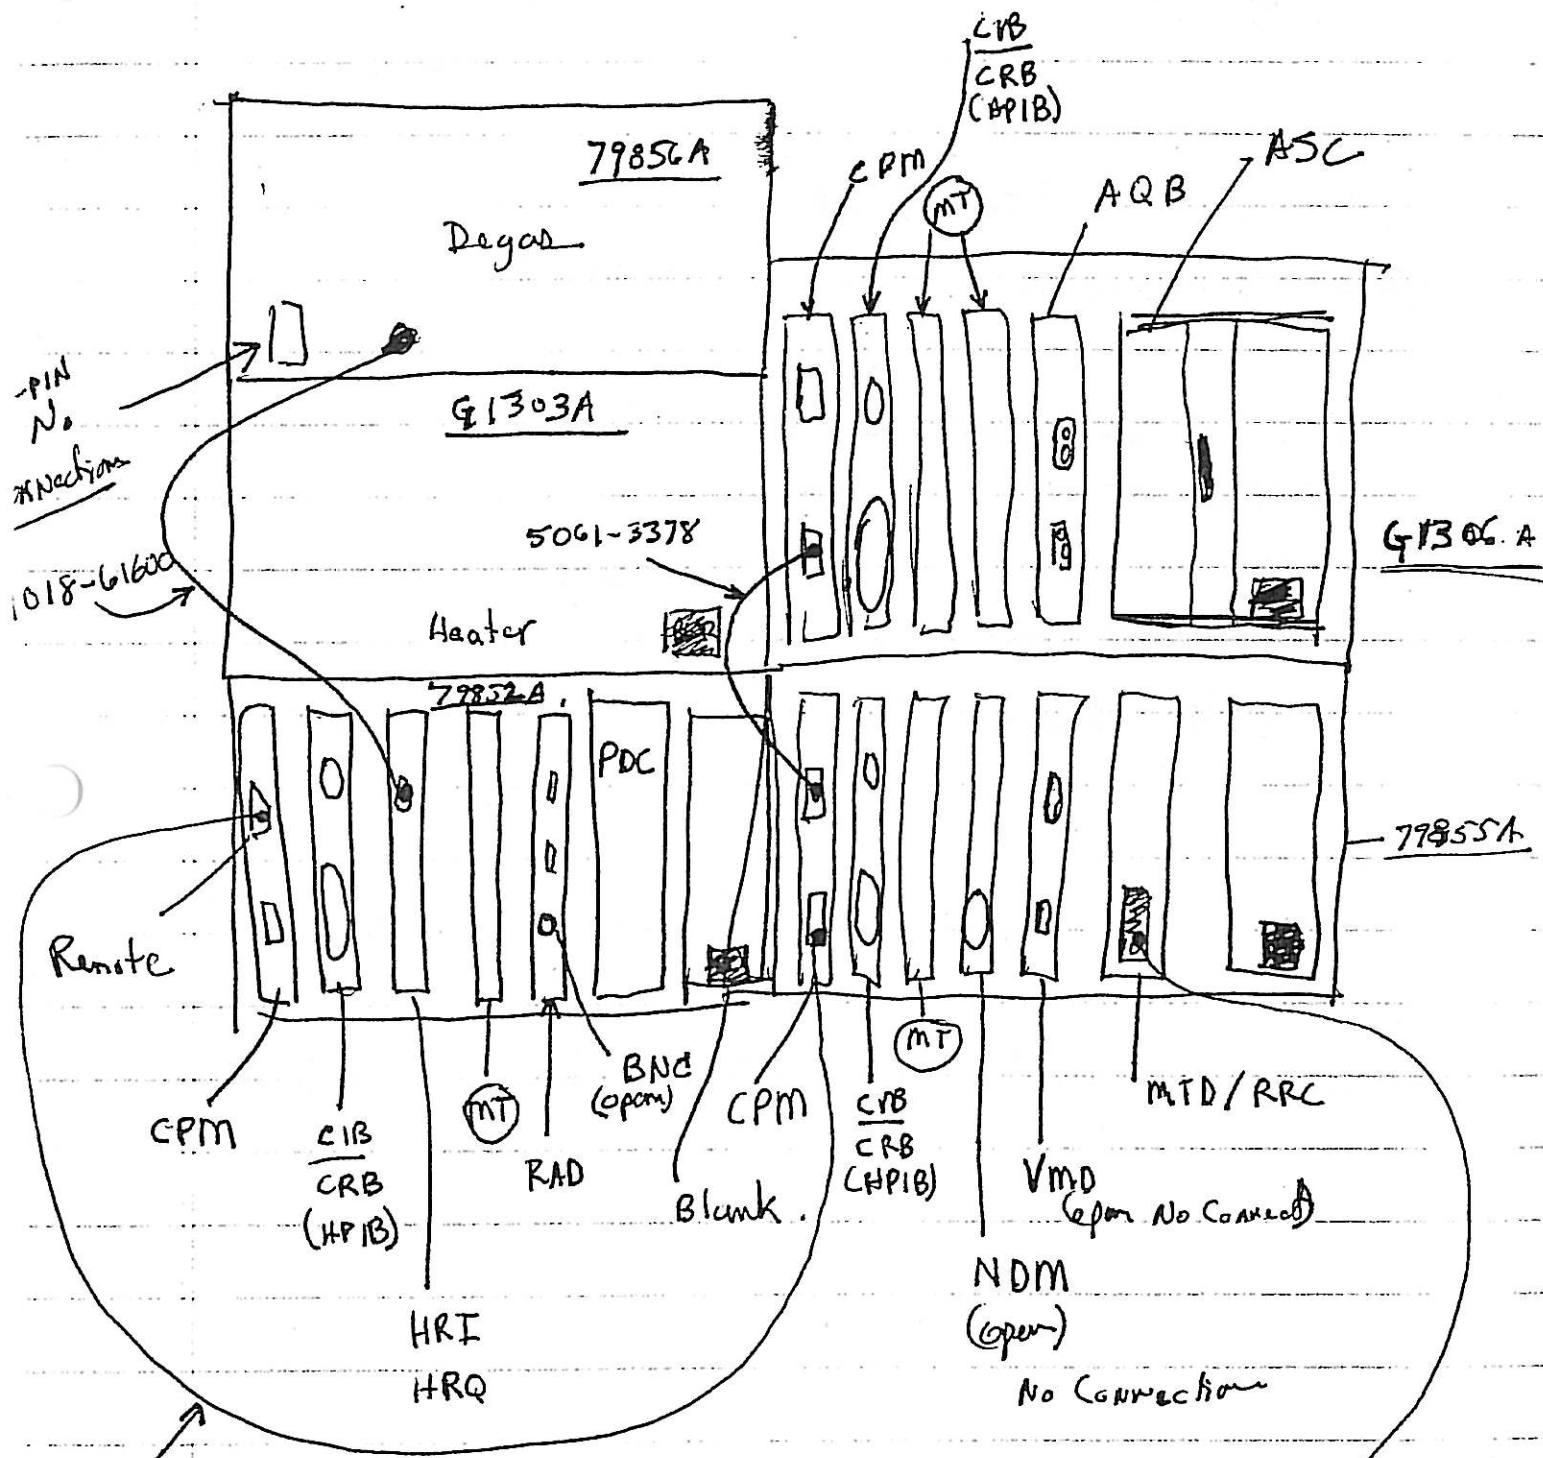 CIB
CRB
(HPIB)
CPM
MT
AQB
ASC
79856A
Degas
-PIN
No
G1303A
5061-3378
G1306.A
018-61600
Heater
79852A.
PDC
79855A
Remote
CPM
CIB
CRB
(HPIB)
HRI
HRQ
MT
RAD
BNC
(open)
Blank.
CPM
CIB
CRB
(HPIB)
MT
NDM
(open)
No Connection
VMD
(open No Connect)
MTD/RRC